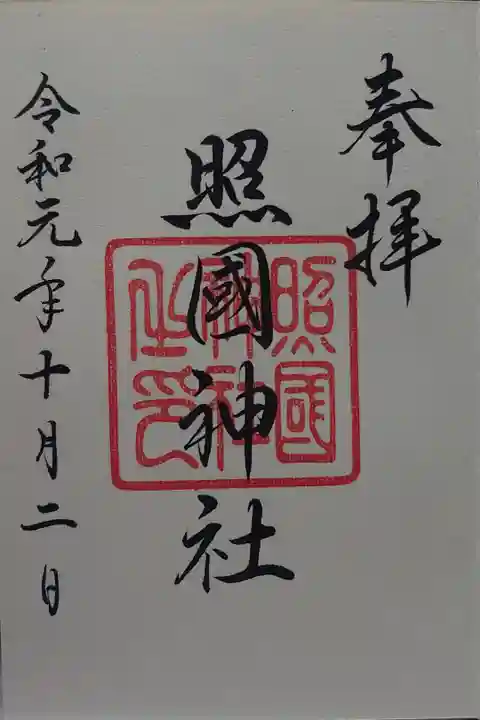 奉拝
照國神社
照國
神社
之印
令和元年十月二日